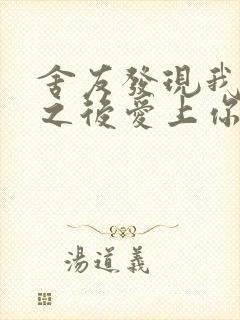 舍友發現我
之後愛上你
湯道義